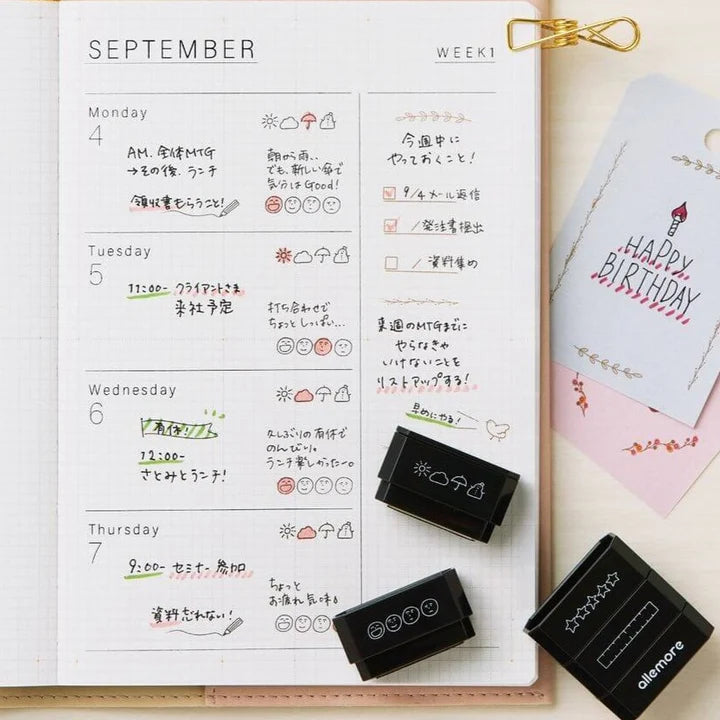 SEPTEMBER
WEEK1
Monday
4
AM. 全体MTG
→その後、ランチ
領収書もらうこと!
朝から雨..
でも、新しい傘で
気分はGood!
Tuesday
5
11:00- クライアントさま
来社予定
打ち合わせで
ちょっと しっぱい...
Wednesday
6
有休!
12:00-
さとみとランチ!
久しぶりの有休で
のんびり。
ランチ楽しかったー。
Thursday
7
9:00- セミナー参加
資料忘れない!
ちょっと
お疲れ気味
今週中に
やっておくこと!
9/4 メール返信
/発注書提出
/資料集め
来週のMTGまでに
やらなきゃ
いけないことを
リストアップする!
早めにやる!
HAPPY
BIRTHDAY
allemore